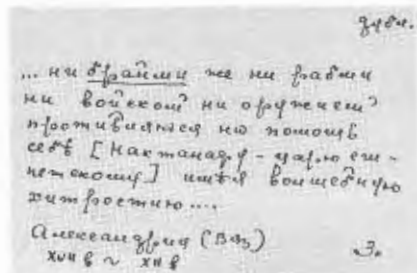 дубл.
... ни браими же ни рабми
ни войском ни оружием
противляяся но помощь
себѣ [Нактанаву - царю еги-
петскому] имѣя волшебную
хитростию....
Александрия (ВФ)
XVII в ~ XII в
Э.